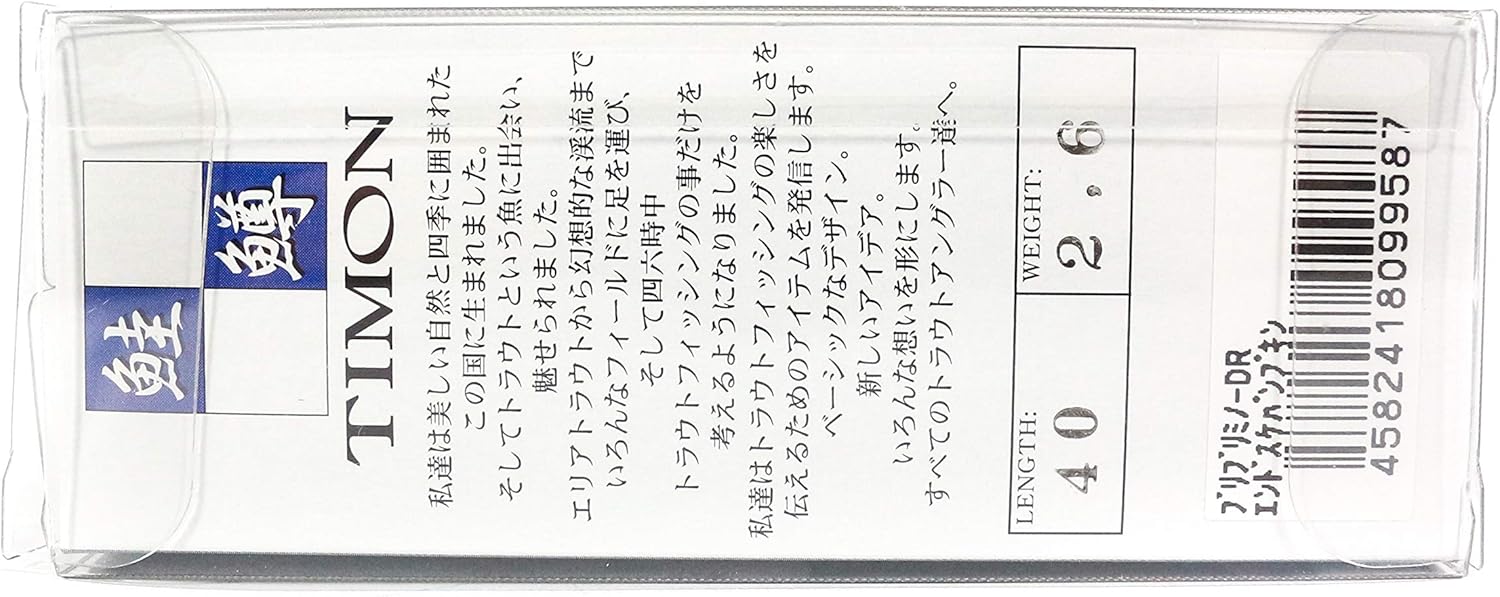 鮭
鱒
TIMON
私達は美しい自然と四季に囲まれた
この国に生まれました。
そしてトラウトという魚に出会い、
魅せられました。
エリアトラウトから幻想的な渓流まで
いろんなフィールドに足を運び、
そして四六時中
トラウトフィッシングの事だけを
考えるようになりました。
私達はトラウトフィッシングの楽しさを
伝えるためのアイテムを発信します。
ベーシックなデザイン。
新しいアイデア。
いろんな想いを形にします。
すべてのトラウトアングラー達へ。
LENGTH: WEIGHT:
40 2.6
ブリブリミノーDR
エンドスケバンプキン
4582418099587